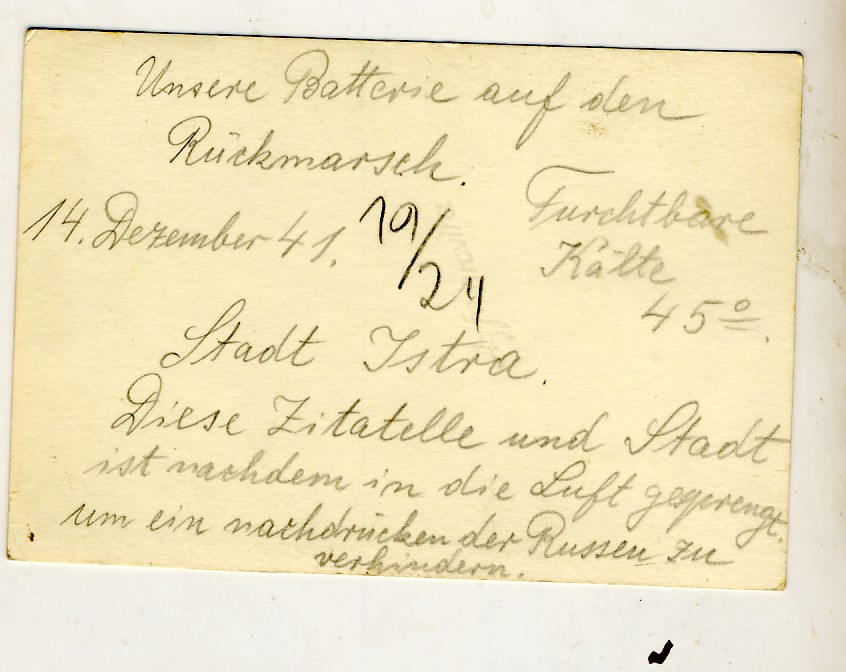 Unsere Batterie auf den
Rückmarsch.
Furchtbare
14. Dezember 41.
19/24
Kälte
45º.
Stadt Istra.
Diese Zitatelle und Stadt
ist nachdem in die Luft gesprengt.
um ein nachdrücken der Russen zu
verhindern.